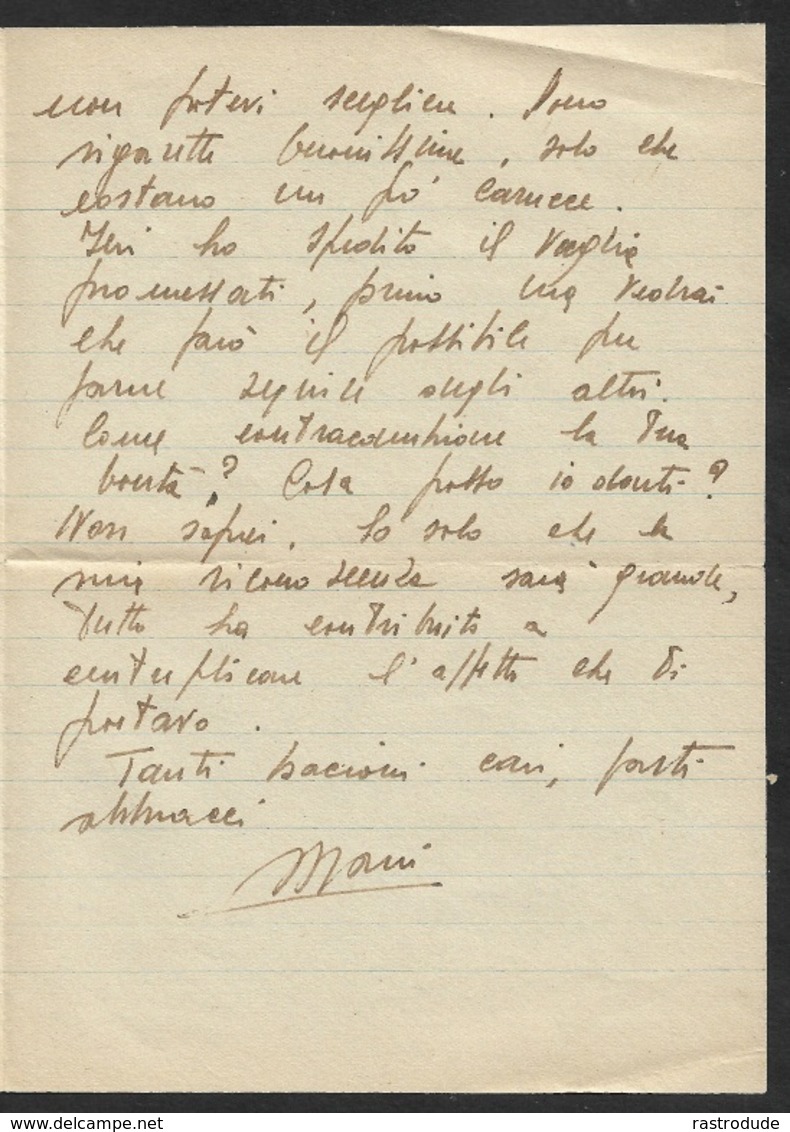 non potevi scegliere. Sono
sigarette buonissime, solo che
costano un po' carucce.
Ieri ho spedito il vaglia
promessoti, primo ma vedrai
che farò il possibile per
farne seguire degli altri.
Come la tua
bontà? Cosa posso io darti?
Non saprei. So solo che la
mia riconoscenza sarà grande,
tutto ha contribuito a
centuplicare l'affetto che ti
portavo.
Tanti bacioni cari, forti
abbracci
www.delcampe.net
rastrodude